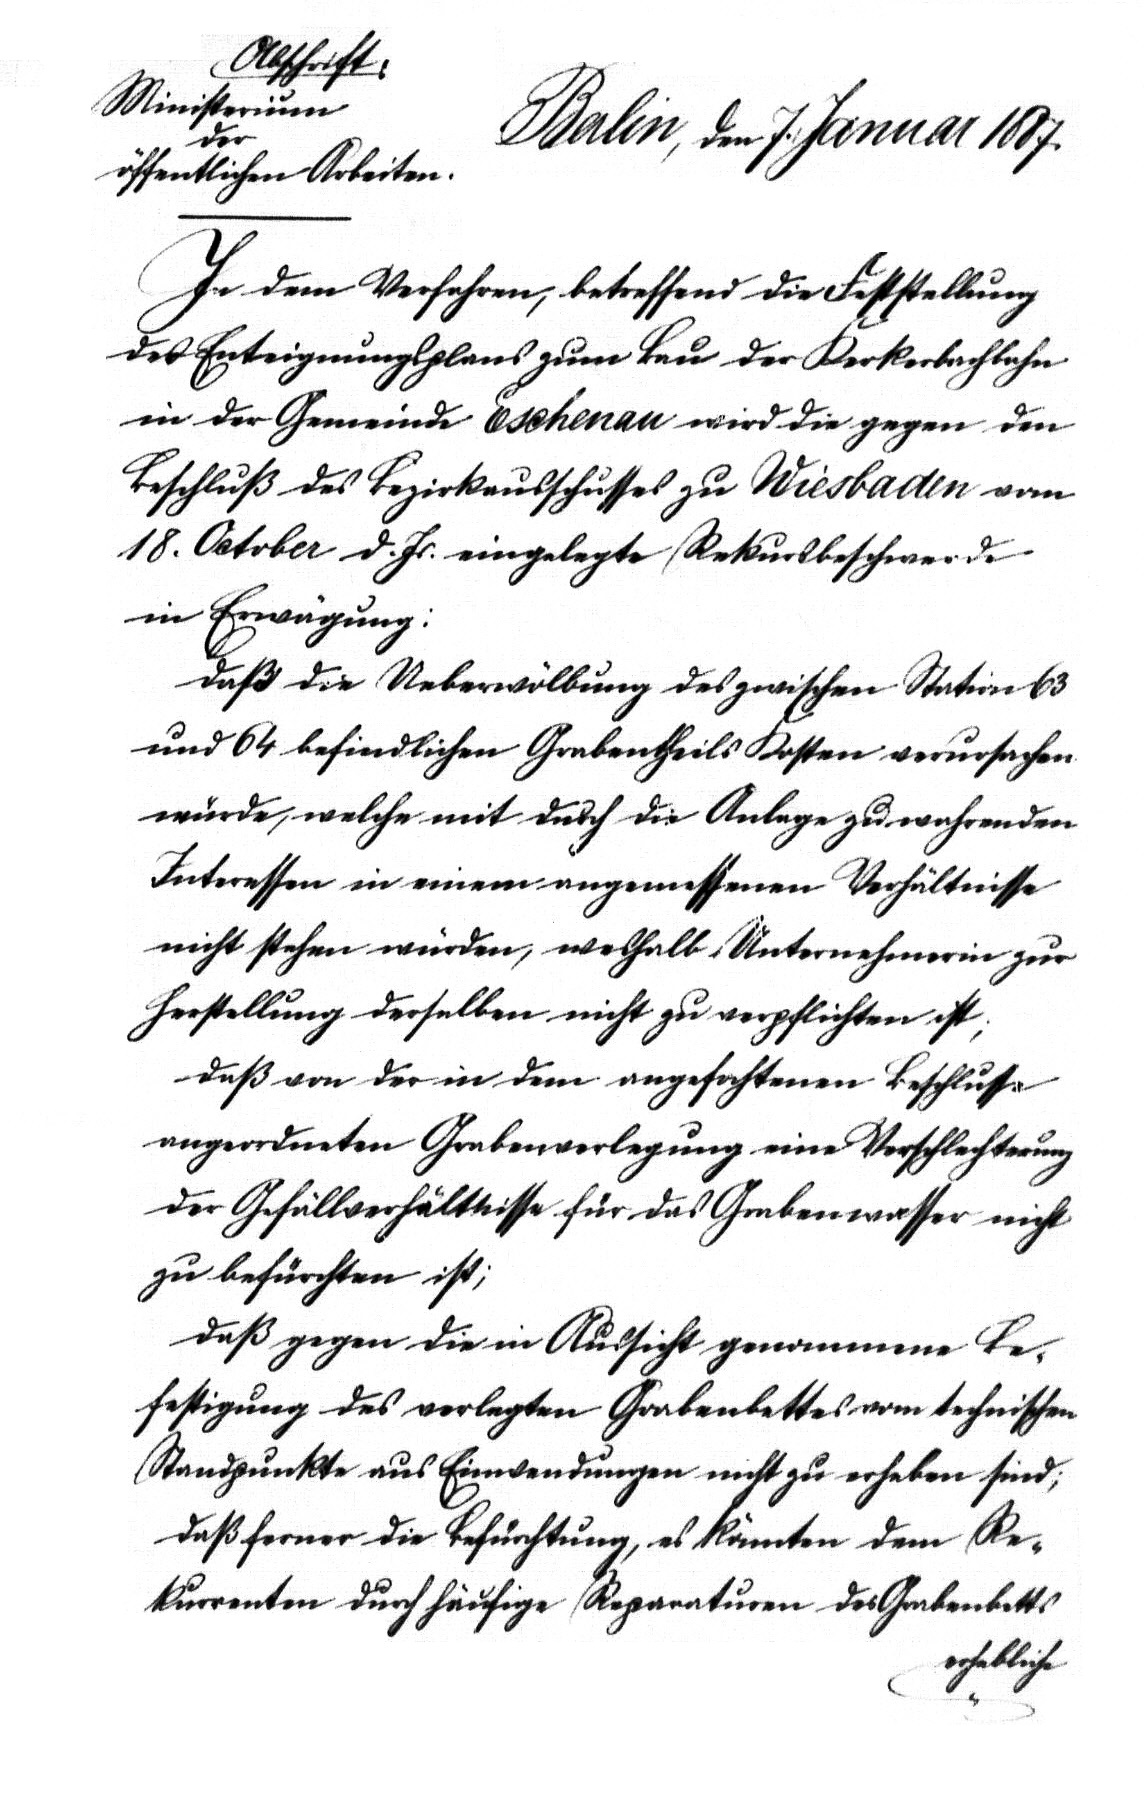 Abschrift.
Ministerium
der
öffentlichen Arbeiten.
Berlin, den 7. Januar 1887.
In dem Verfahren, betreffend die Feststellung
des Enteignungsplans zum Bau der Kerkerbachbahn
in der Gemeinde Eschenau wird die gegen den
Beschluß des Bezirksausschusses zu Wiesbaden vom
18. October d. Js. eingelegte Rekursbeschwerde
in Erwägung:
daß die Ueberwölbung des zwischen Station 63
und 64 befindlichen Grabentheils Kosten verursachen
würde, welche mit durch die Anlage zu wahrenden
Interessen in einem angemessenen Verhältnisse
nicht stehen würden, weshalb Unternehmerin zur
Herstellung derselben nicht zu verpflichten ist;
daß von der in dem angefochtenen Beschlusse
angeordneten Grabenverlegung eine Verschlechterung
der Gefällverhältnisse für das Grabenwasser nicht
zu befürchten ist;
daß gegen die in Aussicht genommene Be-
festigung des verlegten Grabenbettes vom technischen
Standpunkte aus Einwendungen nicht zu erheben sind;
daß ferner die Befürchtung, es könnten dem Re-
kurrenten durch häufige Reparaturen des Grabenbetts
erhebliche